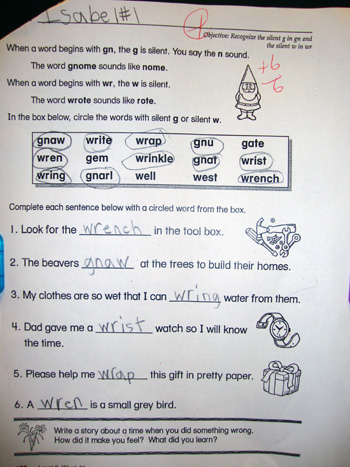 Isabel #1
Objective: Recognize the silent g in gn and
the silent w in wr
When a word begins with gn, the g is silent. You say the n sound.
The word gnome sounds like nome.
+6
When a word begins with wr, the w is silent.
The word wrote sounds like rote.
In the box below, circle the words with silent g or silent w.
gnaw write wrap gnu gate
wren gem wrinkle gnat wrist
wring gnarl well west wrench
Complete each sentence below with a circled word from the box.
1. Look for the wrench in the tool box.
2. The beavers gnaw at the trees to build their homes.
3. My clothes are so wet that I can wring water from them.
4. Dad gave me a wrist watch so I will know
the time.
5. Please help me wrap this gift in pretty paper.
6. A wren is a small grey bird.
Write a story about a time when you did something wrong.
How did it make you feel? What did you learn?